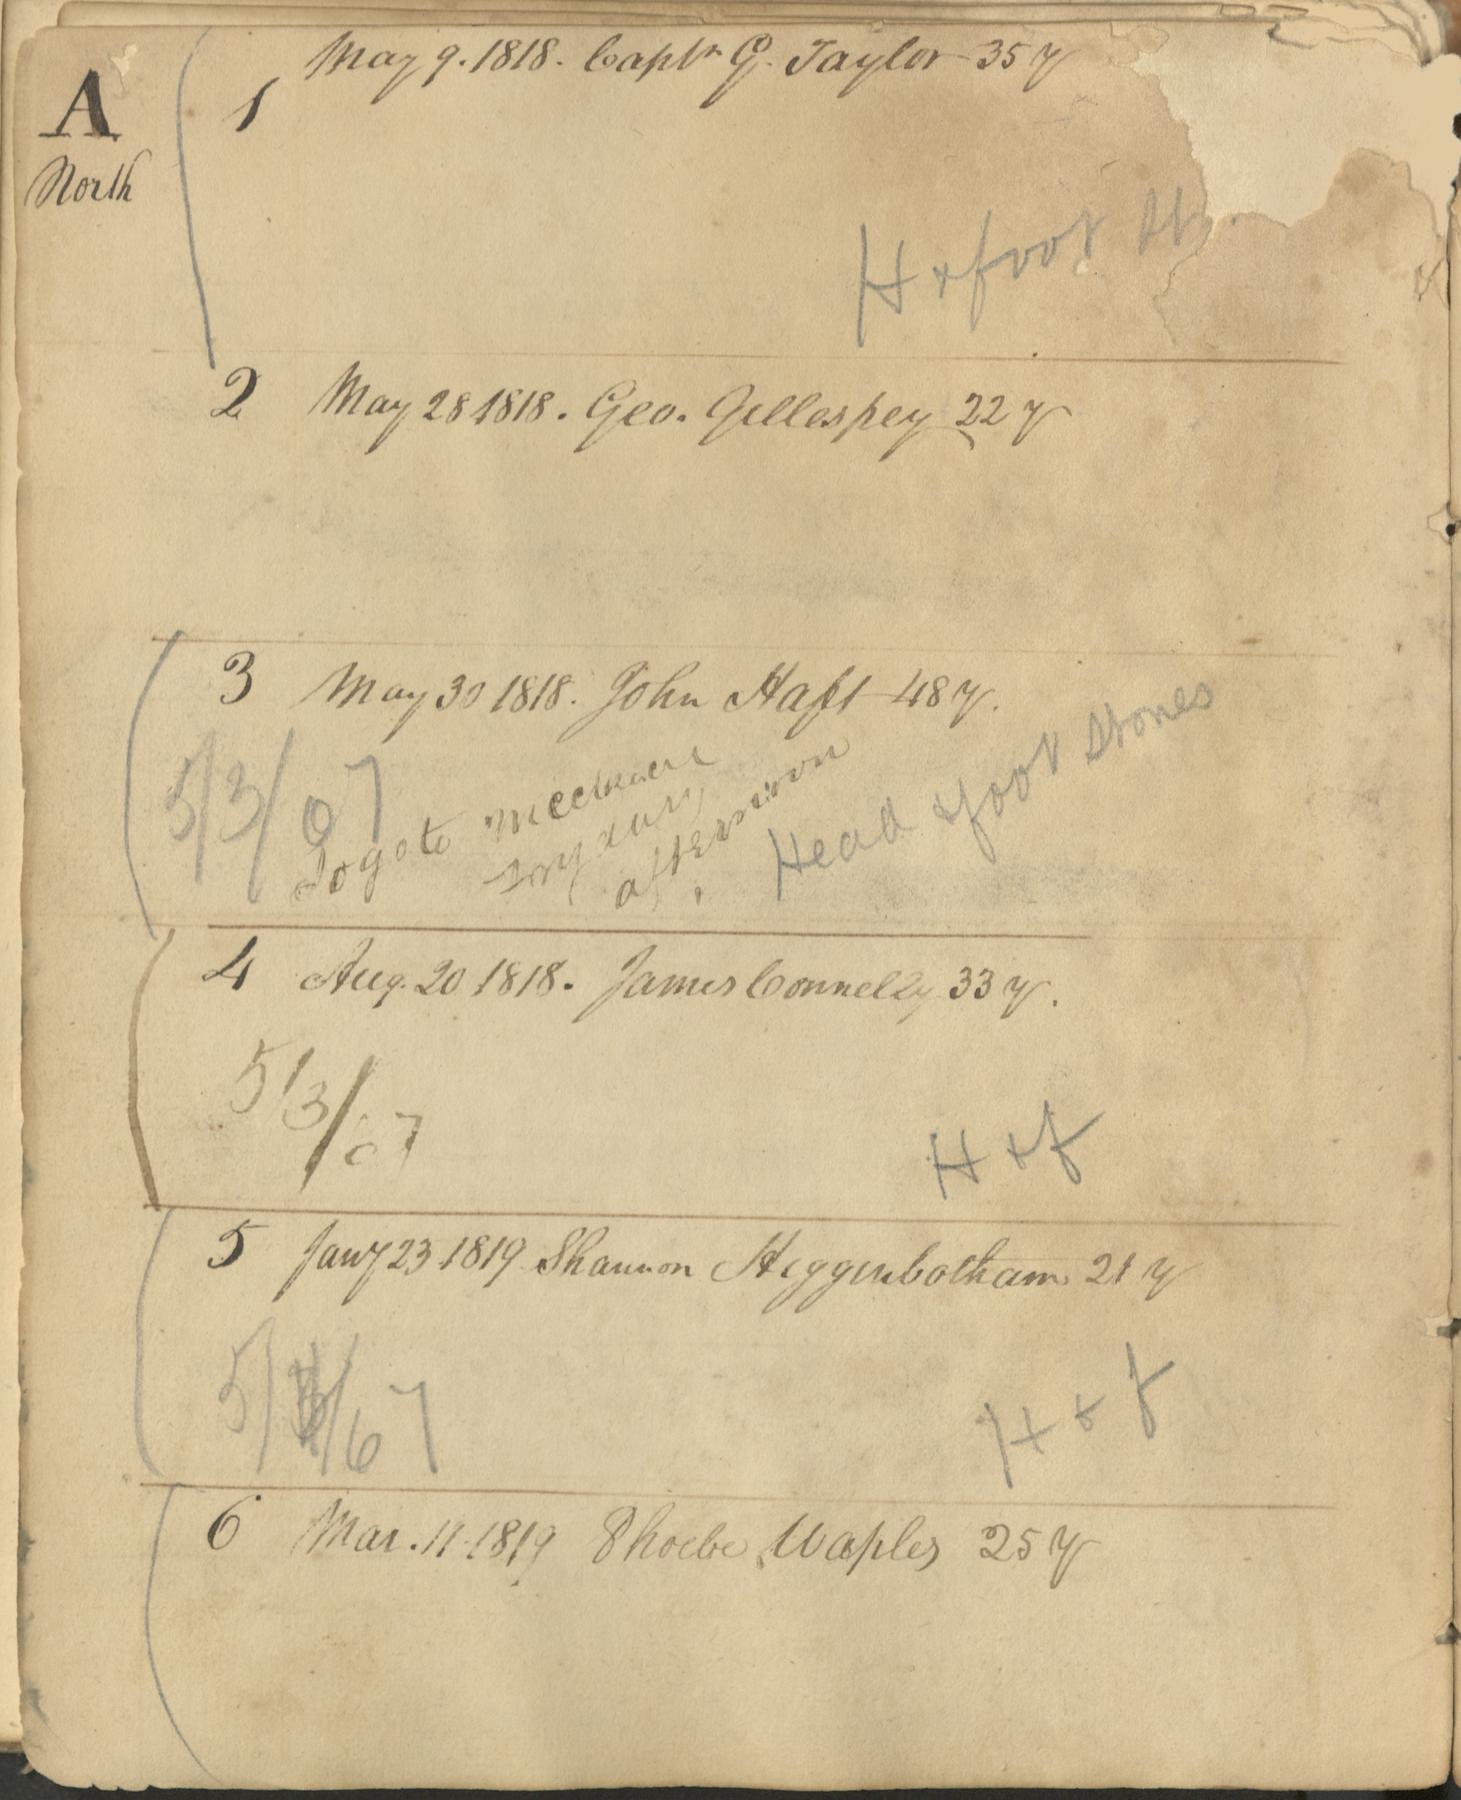 A
North
1 May 9. 1818. Captn G. Taylor 35 y
H & foot St
2 May 28 1818. Geo. Gillespey 22 y
3 May 30 1818. John Haft 48 y.
5/3/07
To go to
afternoon
Head & foot Stones
4 Aug. 20 1818. James Connelly 33 y.
5/3/07
H & f
5 Jany 23 1819 Shannon Heggenbotham 21 y
5/3/67
H & f
6 Mar. 11. 1819 Phoebe Waples 25 y